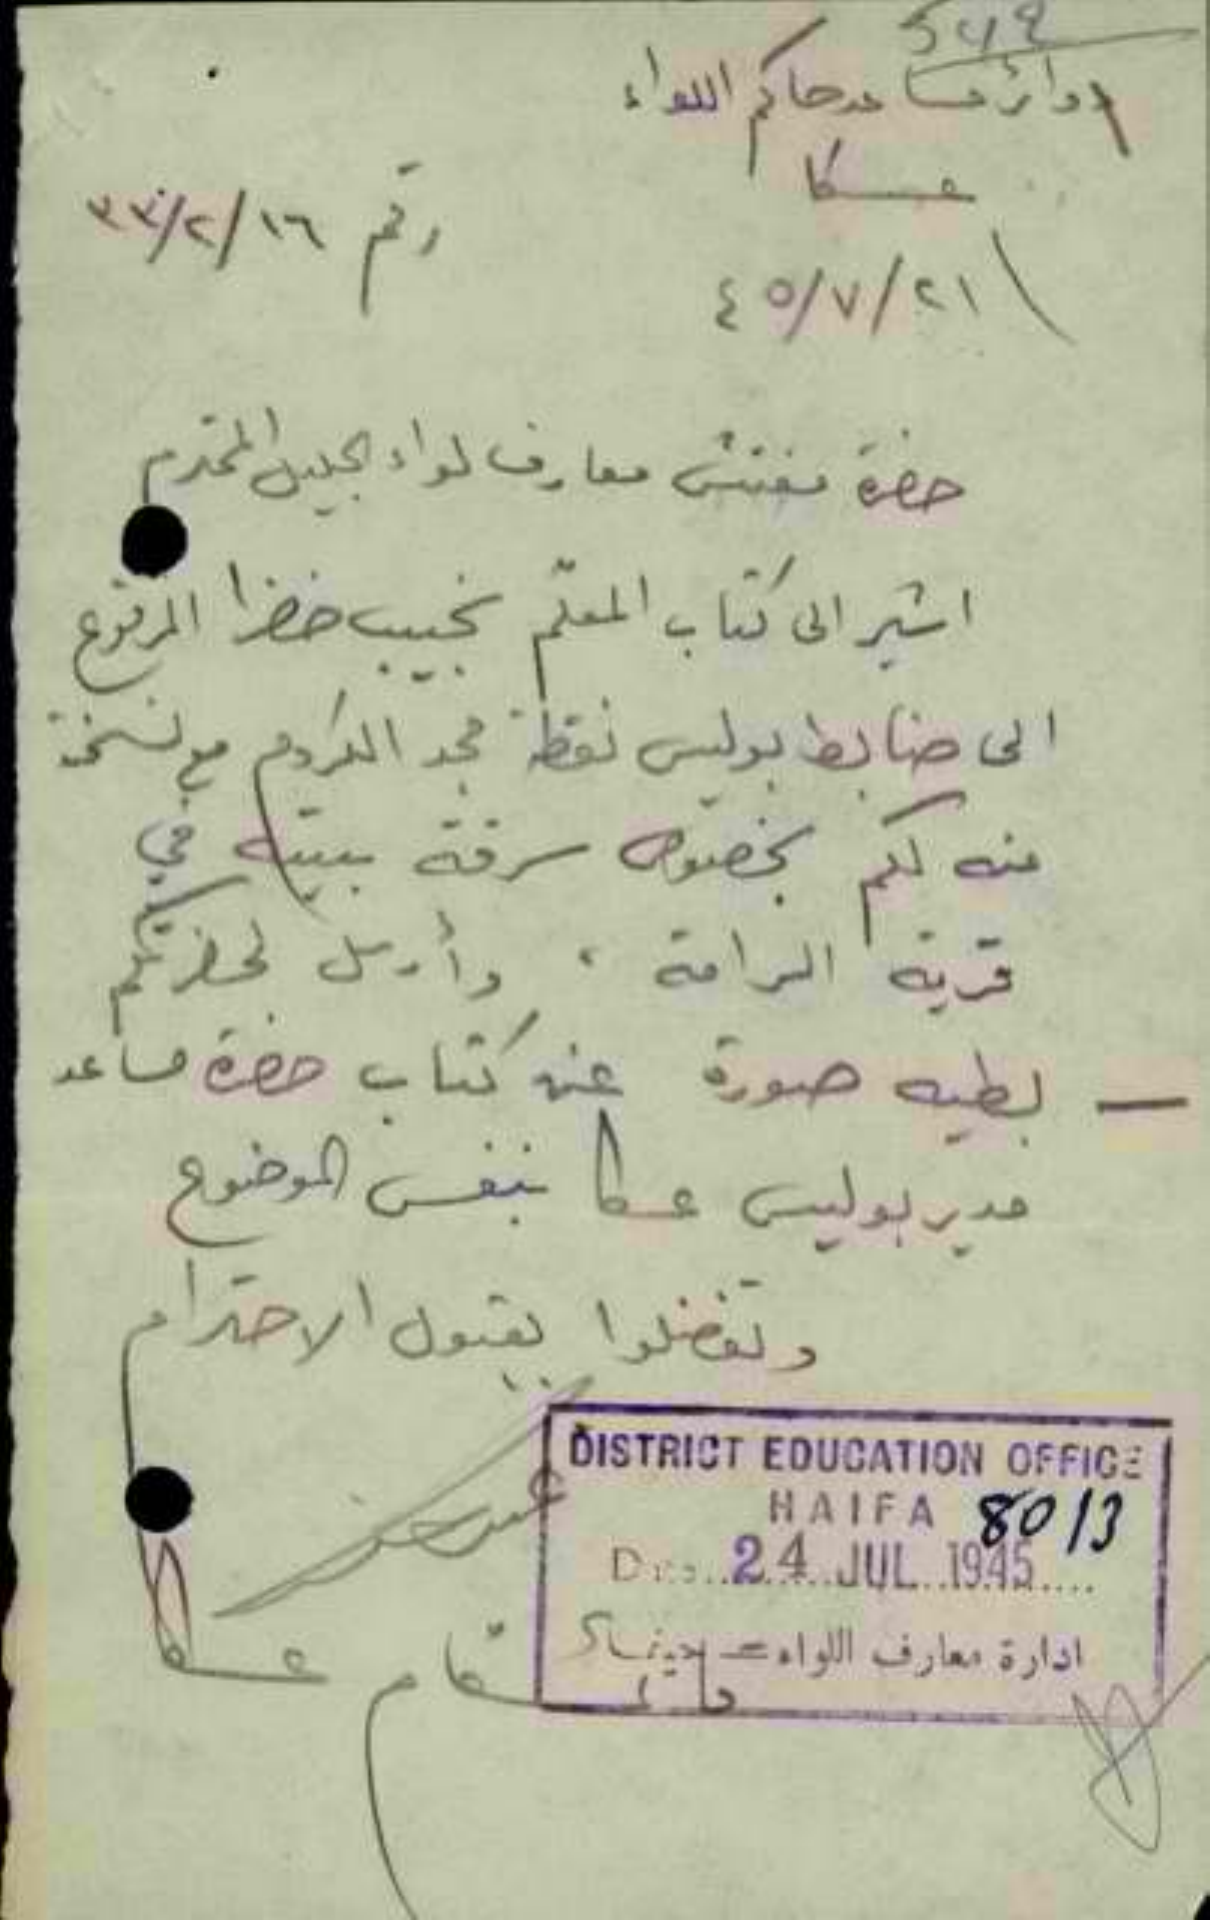 دائرة مساعد حاكم اللواء
عكا
رقم ١٦/٢/٣٣
٢١/٧/٤٥
حضرة مفتش معارف لواء الجليل المحترم
اشير الى كتاب المعلّم نجيب خضرا المرفوع
الى ضابط بوليس نقطة مجد الكروم مع نسخة
منه لكم بخصوص سرقة بيته في
قرية الرامة ، وأرسل لحضرتكم
بطيه صورة عن كتاب حضرة مساعد
مدير بوليس عكا بنفس الموضوع
وتفضلوا بقبول الاحترام
DISTRICT EDUCATION OFFICE
HAIFA 80/3
Date..24..JUL..1945....
ادارة معارف اللواء – حيفا
قائمقام عكا